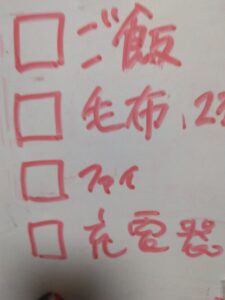 ご飯
毛布、2
ファイ
充電器